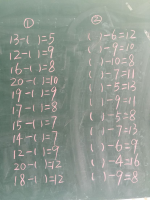 ①
13-( )=5
12-( )=9
16-( )=8
20-( )=10
19-( )=9
17-( )=8
15-( )=7
14-( )=7
12-( )=9
20-( )=12
18-( )=12
②
( )-6=12
( )-9=10
( )-8=8
( )-7=11
( )-5=13
( )-9=11
( )-5=8
( )-7=13
( )-6=9
( )-4=16
( )-9=8